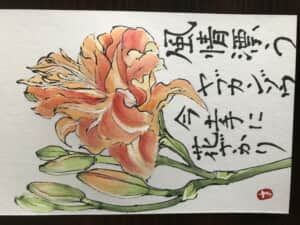 風情漂う
ヤブカンゾウ
今土手に
花ざかり